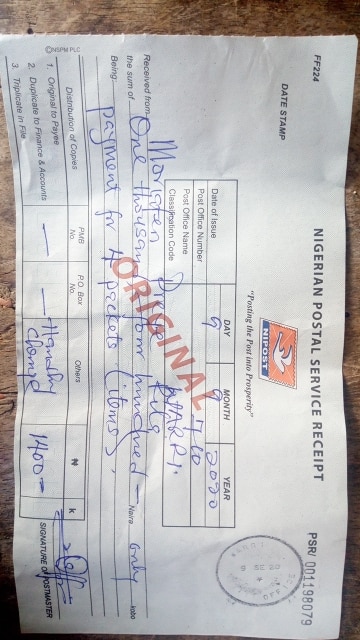 FF224
NIGERIAN POSTAL SERVICE RECEIPT
PSR/ 001198079
NIPOST
DATE STAMP
"Posting the Post into Prosperity"
DAY MONTH YEAR
Date of Issue 9 9 2020
Post Office Number
Post Office Name
Classification Code
ORIGINAL
Received from
the sum of One thousand four hundred - Naira only kobo
Being: payment for 4 packets (items).
Distribution of Copies PMB No. P.O. Box No. Others ₦ k
1. Original to Payee — — Handling 1400 =
2. Duplicate to Finance & Accounts
3. Triplicate in File
SIGNATURE OF POSTMASTER
©INSPM PLC